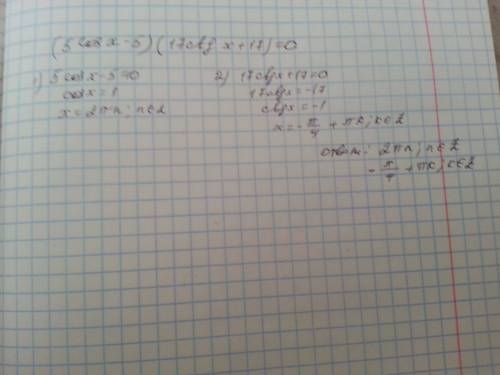 (5 cos x - 5)(17 ctg x + 17) = 0
1) 5 cos x - 5 = 0
cos x = 1
x = 2πn; n∈Z
2) 17 ctg x + 17 = 0
17 ctg x = -17
ctg x = -1
x = -π/4 + πk; k∈Z
ответ: 2πn; n∈Z
-π/4 + πk; k∈Z